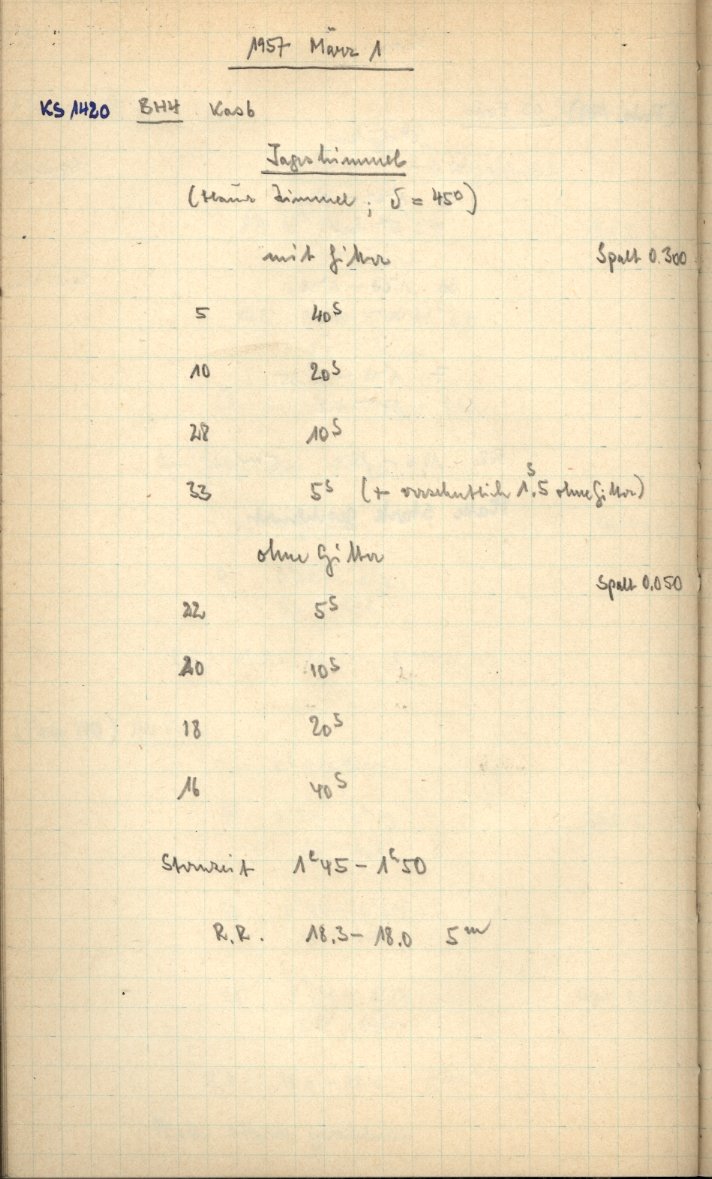 1957 März 1
KS 1420 BH4 Kasb
Tageshimmel
(blauer Himmel; δ = 45°)
mit Gitter Spalt 0.300
5 40ˢ
10 20ˢ
28 10ˢ
33 5ˢ (+ versehentlich 1ˢ.5 ohne Gitter)
ohne Gitter
Spalt 0.050
22 5ˢ
20 10ˢ
18 20ˢ
16 40ˢ
Sternzeit 1ʰ45 – 1ʰ50
R.R. 18.3 – 18.0 5ᵐ